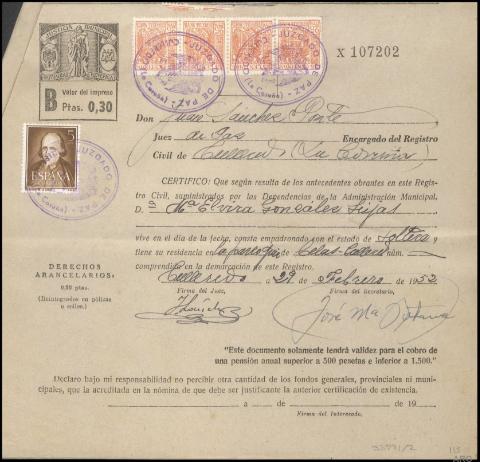 JUSTICIA MUNICIPAL
B Valor del impreso
Ptas. 0,30
JUZGADO DE PAZ
(La Coruña)
JUZGADO DE PAZ
(La Coruña)
X 107202
5
ESPAÑA
JUZGADO DE PAZ
(La Coruña)
Don Juan Sánchez Ponte
Juez de Paz Encargado del Registro
Civil de (La Coruña)
CERTIFICO: Que según resulta de los antecedentes obrantes en este Registro
Civil, suministrados por las Dependencias de la Administración Municipal.
D.ª Mª Elvira González
vive en el día de la fecha, consta empadronado con el estado de soltera
y tiene su residencia en la parroquia de Celas núm.
comprendida en la demarcación de este Registro.
a 29 de Febrero de 1952
Firma del Juez, Firma del Secretario,
José Mª
DERECHOS
ARANCELARIOS:
0,50 ptas.
(Reintegrados en pólizas
o sellos.)
"Este documento solamente tendrá validez para el cobro de
una pensión anual superior a 500 pesetas e inferior a 1.500."
Declaro bajo mi responsabilidad no percibir otra cantidad de los fondos generales, provinciales ni municipales,
que la acreditada en la nómina de que debe ser justificante la anterior certificación de existencia.
a de de 19
Firma del Interesado.